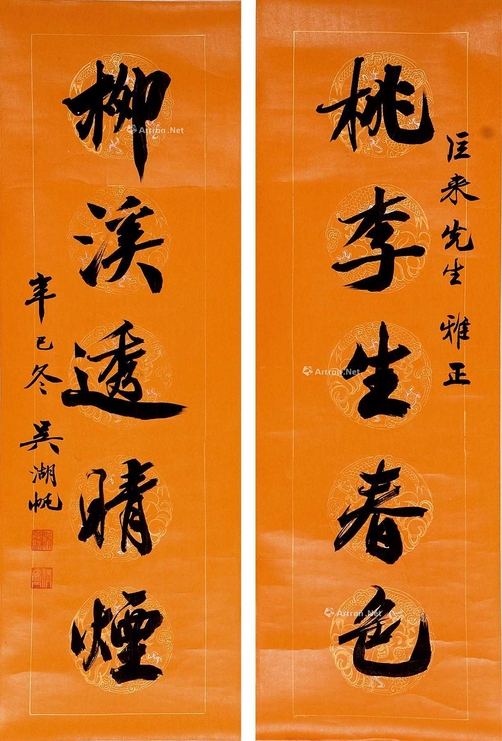 来先生 雅正
桃李生春色
柳溪透晴煙
辛巳冬 吳湖帆
Artron.Net
Artron.Net
Artron.Net
Artron.Net
Artron.Net
Artron.Net